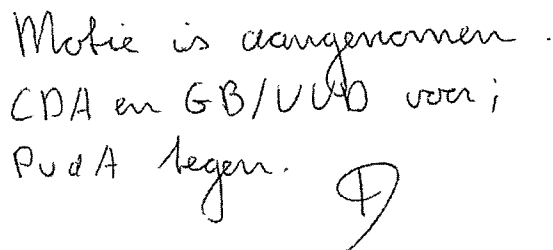 Motie is aangenomen.
CDA en GB/VVD voor;
PvdA tegen.